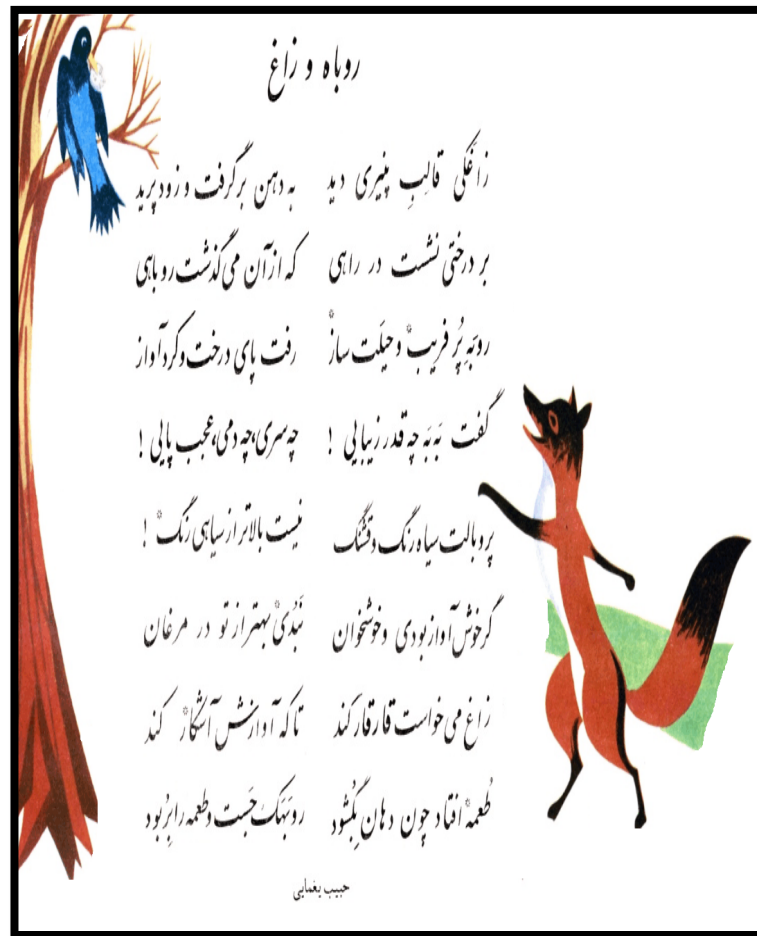 روباه و زاغ
زاغکی قالبِ پنیری دید به دهن برگرفت و زود پرید
بر درختی نشست در راهی که از آن می‌گذشت روباهی
روبَهِ پُر فریب* و حیلَت ساز* رفت پای درخت و کرد آواز
گفت بَه‌بَه چه قدر زیبایی ! چه سری، چه دمی، عجب پایی !
پر و بالت سیاه رنگ و قشنگ نیست بالاتر از سیاهی رنگ* !
گر خوش آواز بودی و خوشخوان نَبُدی* بهتر از تو در مرغان
زاغ می‌خواست قار قار کند تا که آوازش آشکار* کند
طُعمه* افتاد چون دهان بِگشود روبَهَک جَست و طعمه را بِرُبود
حبیب یغمایی